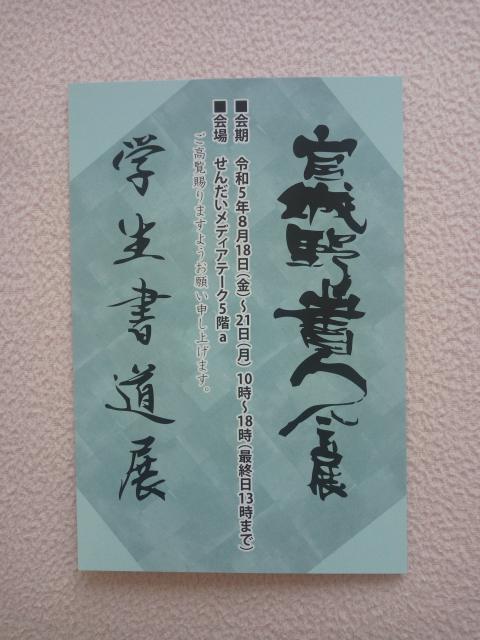 宮城野書人会展
■会期　令和5年8月18日(金)〜21日(月) 10時〜18時(最終日13時まで)
■会場　せんだいメディアテーク5階a
ご高覧賜りますようお願い申し上げます。
学生書道展